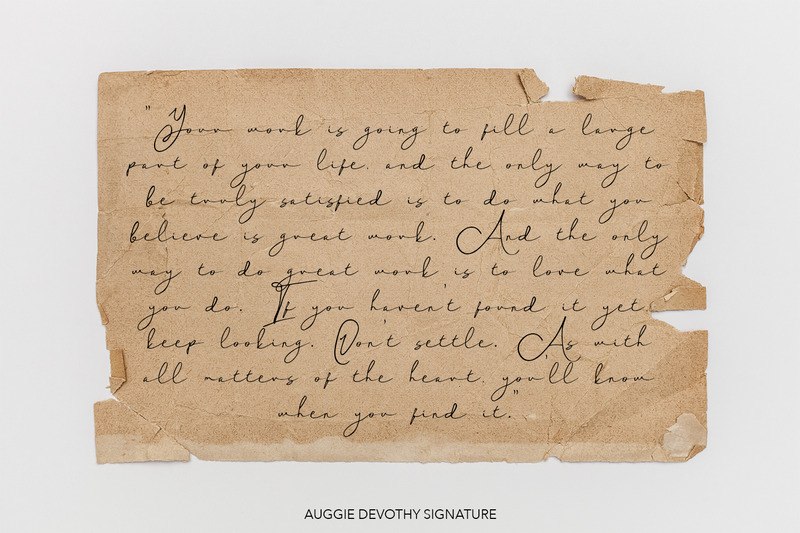 "Your work is going to fill a large
part of your life, and the only way to
be truly satisfied is to do what you
believe is great work. And the only
way to do great work is to love what
you do. If you haven't found it yet,
keep looking. Don't settle. As with
all matters of the heart, you'll know
when you find it."
AUGGIE DEVOTHY SIGNATURE